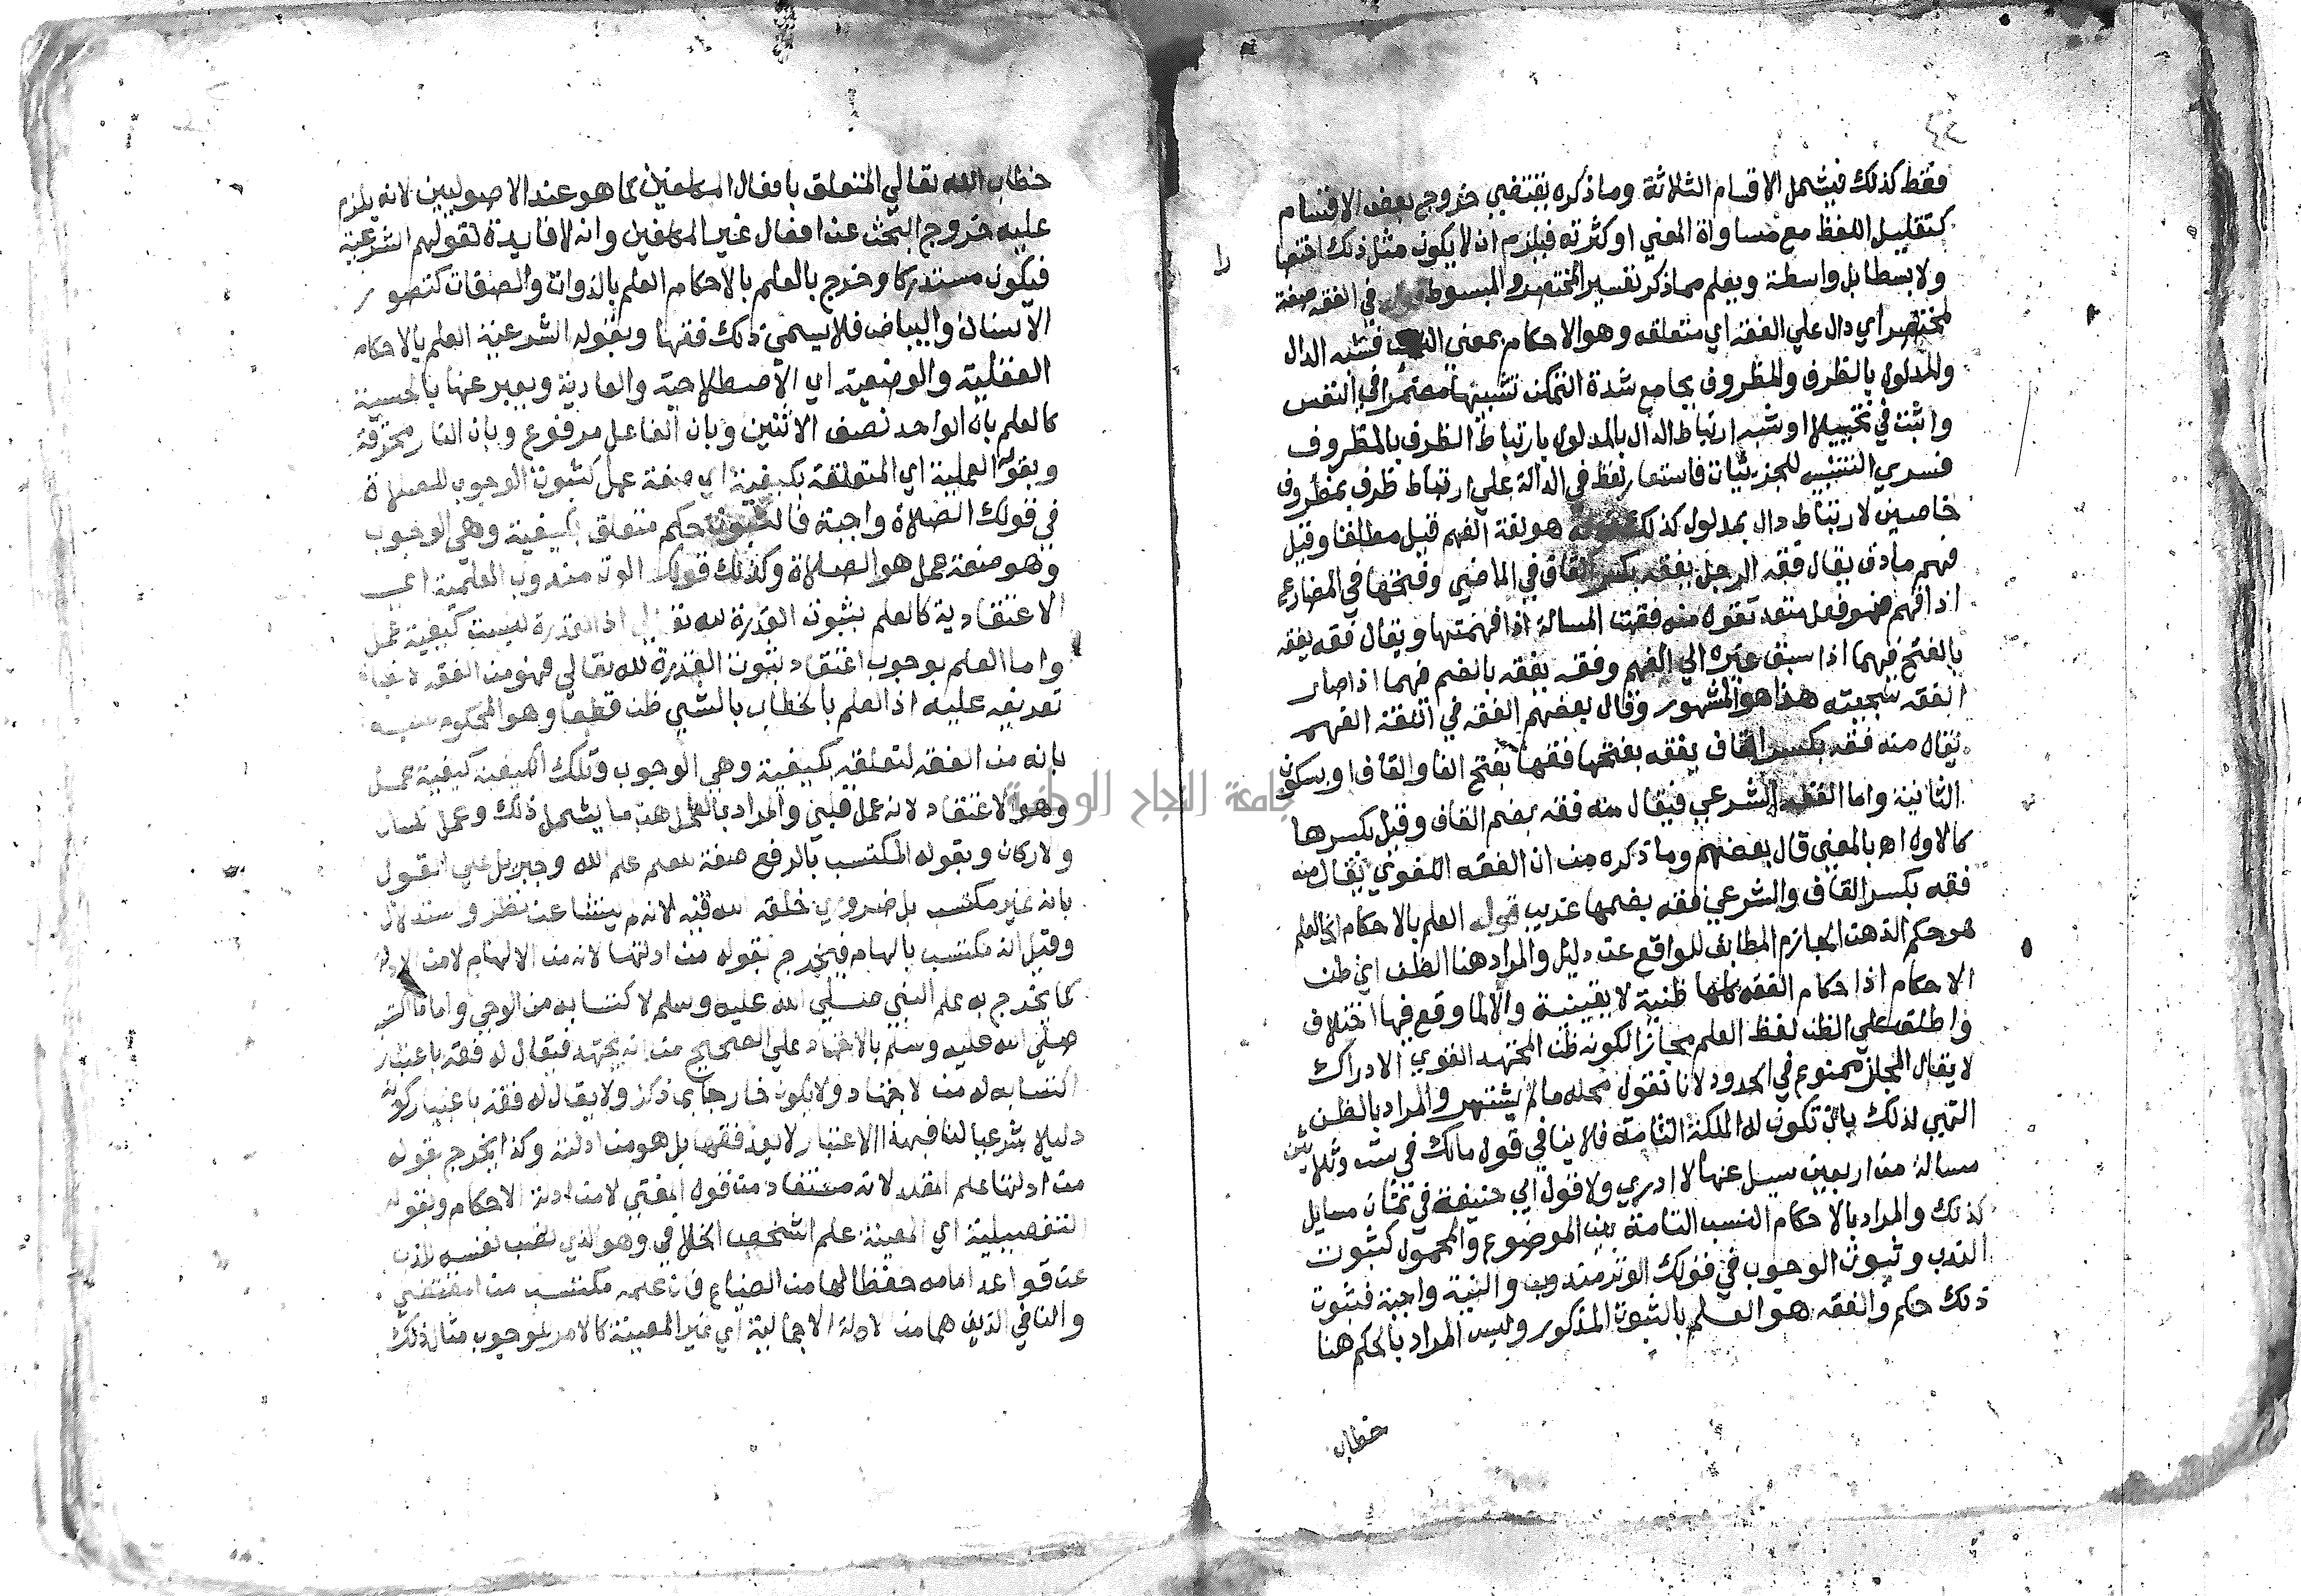 فقط كذلك فيشمل الاقسام الثلاثة وما ذكره يقتضي خروج بعض الاقسام
كتقليل اللفظ مع مساواة المعني او كثرته فيلزم ان لا يكون مثل ذلك اختصا
را
ولا بسطا بل واسطة ويعلم مما ذكر تفسير المختصر والمبسوط في الفقه صفة
لمختصر اي دال علي الفقه اي متعلقه وهو الاحكام بمعني فشبه الدال
والمدلول بالظرف والمظروف بجامع شدة التمكن تشبيها مضمرا في النفس
واثبت في تخييلا او شبه ارتباط الدال بالمدلول بارتباط الظرف بالمظروف
فسري التشبيه للجزئيات فاستعار لفظ في الدالة علي ارتباط ظرف بمظروف
خاصين لارتباط دال بمدلول كذلك هو لغة الفهم قيل مطلقا وقيل
فهم ما دق يقال فقه الرجل يفقه بكسر القاف في الماضي وفتحها في المضارع
اذا فهم فهو فعل متعد تقول منه فقهت المسالة اذا فهمتها ويقال فقه يفقه
بالفتح فيهما اذا سبق غيره الي الفهم وفقه يفقه بالضم فيهما اذا صار
الفقه سجيته هذا هو المشهور وقال بعضهم الفقه في اللغة الفهم
يقال منه فقه بكسر القاف يفقه بفتحها فقها بفتح الفا والقاف او بسكون
الثانية واما الفقه الشرعي فيقال منه فقه بضم القاف وقيل بكسرها
كالاول اه بالمعني قال بعضهم وما ذكره من ان الفقه اللغوي يقال منه
فقه بكسر القاف والشرعي فقه بضمها غريب قوله العلم بالاحكام الخ العلم
هو حكم الذهن الجازم المطابق للواقع عن دليل والمراد هنا الظن اي ظن
الاحكام اذ احكام الفقه كلها ظنية لا يقينية والا لما وقع فيها اختلاف
واطلق علي الظن لفظ العلم مجازا لكونه ظن المجتهد القوي الادراك
لا يقال المجاز ممنوع في الحدود لانا نقول محله ما لم يشتهر والمراد بالظن
التهيي لذلك بان تكون له الملكة التامة فلا ينافي قول مالك في ست وثلاثين
مسالة من اربعين سيل عنها لا ادري ولا قول ابي حنيفة في ثمان مسايل
كذلك والمراد بالاحكام النسب التامة بين الموضوع والمحمول كثبوت
الندب وثبوت الوجوب في قولك الوتر مندوب والنية واجبة فثبوت
ذلك حكم والفقه هو العلم بالثبوت المذكور وليس المراد بالحكم هنا
خطاب
خطاب الله تعالي المتعلق بافعال المكلفين كما هو عند الاصوليين لانه يلزم
عليه خروج البحث عن افعال غير المكلفين وانه لا فايدة لقولهم الشرعية
فيكون مستدركا وخرج بالعلم بالاحكام العلم بالذوات والصفات كتصور
الانسان والبياض فلا يسمي ذلك فقها وبقوله الشرعية العلم بالاحكام
العقلية والوضعية اي الاصطلاحية والعادية ويعبر عنها بالحسية
كالعلم بان الواحد نصف الاثنين وبان الفاعل مرفوع وبان النار محرقة
وبقوله العملية اي المتعلقة بكيفية اي صفة عمل كثبوت الوجوب للصلاة
في قولك الصلاة واجبة فالثبوت حكم متعلق بكيفية وهي الوجوب
وهو صفة عمل هو الصلاة وكذلك قولك الوتر مندوب العلمية اي
الاعتقادية كالعلم بثبوت القدرة لله تعالي اذ القدرة ليست كيفية عمل
واما العلم بوجوب اعتقاد ثبوت القدرة لله تعالي فهو من الفقه
تعريفه عليه اذ العلم بالخطاب بالشي ظن قطعا وهو المحكوم عليه
بانه من الفقه لتعلقه بكيفية وهي الوجوب وتلك الكيفية كيفية عمل
وهو الاعتقاد لانه عمل قلبي والمراد بالعمل هنا ما يشمل ذلك وعمل لسان
ولاركان وبقوله المكتسب بالرفع صفة للعلم علم الله وجبريل علي القول
بانه غير مكتسب بل ضروري خلقه الله فيه لانه لم ينشا عن نظر واستدلال
وقيل انه مكتسب بالهام فيخرج بقوله من ادلتها لانه من الالهام لا من الادلة
كما يخرج به علم النبي صلي الله عليه وسلم لاكتسابه من الوحي واما
صلي الله عليه وسلم بالاجتهاد علي الصحيح من انه يجتهد فيقال له فقه باعتبار
اكتسابه له من لاجتهاد ولا يكون خارجا بما ذكر ولا يقال له فقه باعتبار كونه
دليلا شرعيا لنا فبهذا الاعتبار لا يعد فقها بل هو من ادلته وكذا يخرج بقوله
من ادلتها علم المقلد لانه مستفاد من قول المفتي لا من ادلة الاحكام وبقوله
التفصيلية اي المعينة علم الشخص الخلافي وهو الذي نصب نفسه للذب
عن قواعد امامه حفظا لها من الضياع فان علمه مكتسب من المقتضي
والنافي الذين هما من لادلة الاجمالية اي غير المعينة كالامر للوجوب مثال ذلك
جامعة النجاح الوطنية